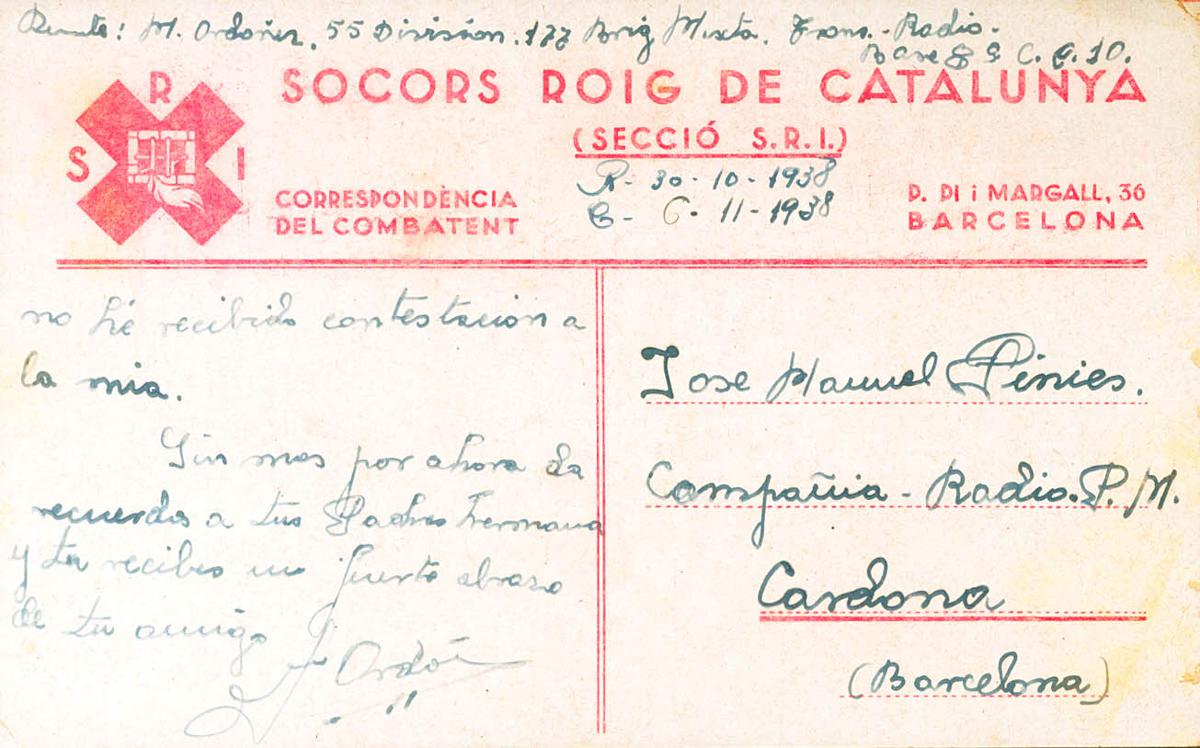 Remite: M. Ordoñez, 55 Division. 177 Brig Mixta. Trans. - Radio -
Base 8ª C. C. 10.
S R I
SOCORS ROIG DE CATALUNYA
(SECCIÓ S.R.I.)
CORRESPONDÈNCIA
DEL COMBATENT
R - 30 - 10 - 1938
C - 6 - 11 - 1938
P. PI i MARGALL, 36
BARCELONA
no hé recibido contestacion a
la mia.
Sin mas por ahora da
recuerdos a tus Padres hermana
y tu recibes un fuerte abrazo
de tu amigo
Jose Manuel Pinies.
Compañia - Radio. P. M.
Cardona
(Barcelona)